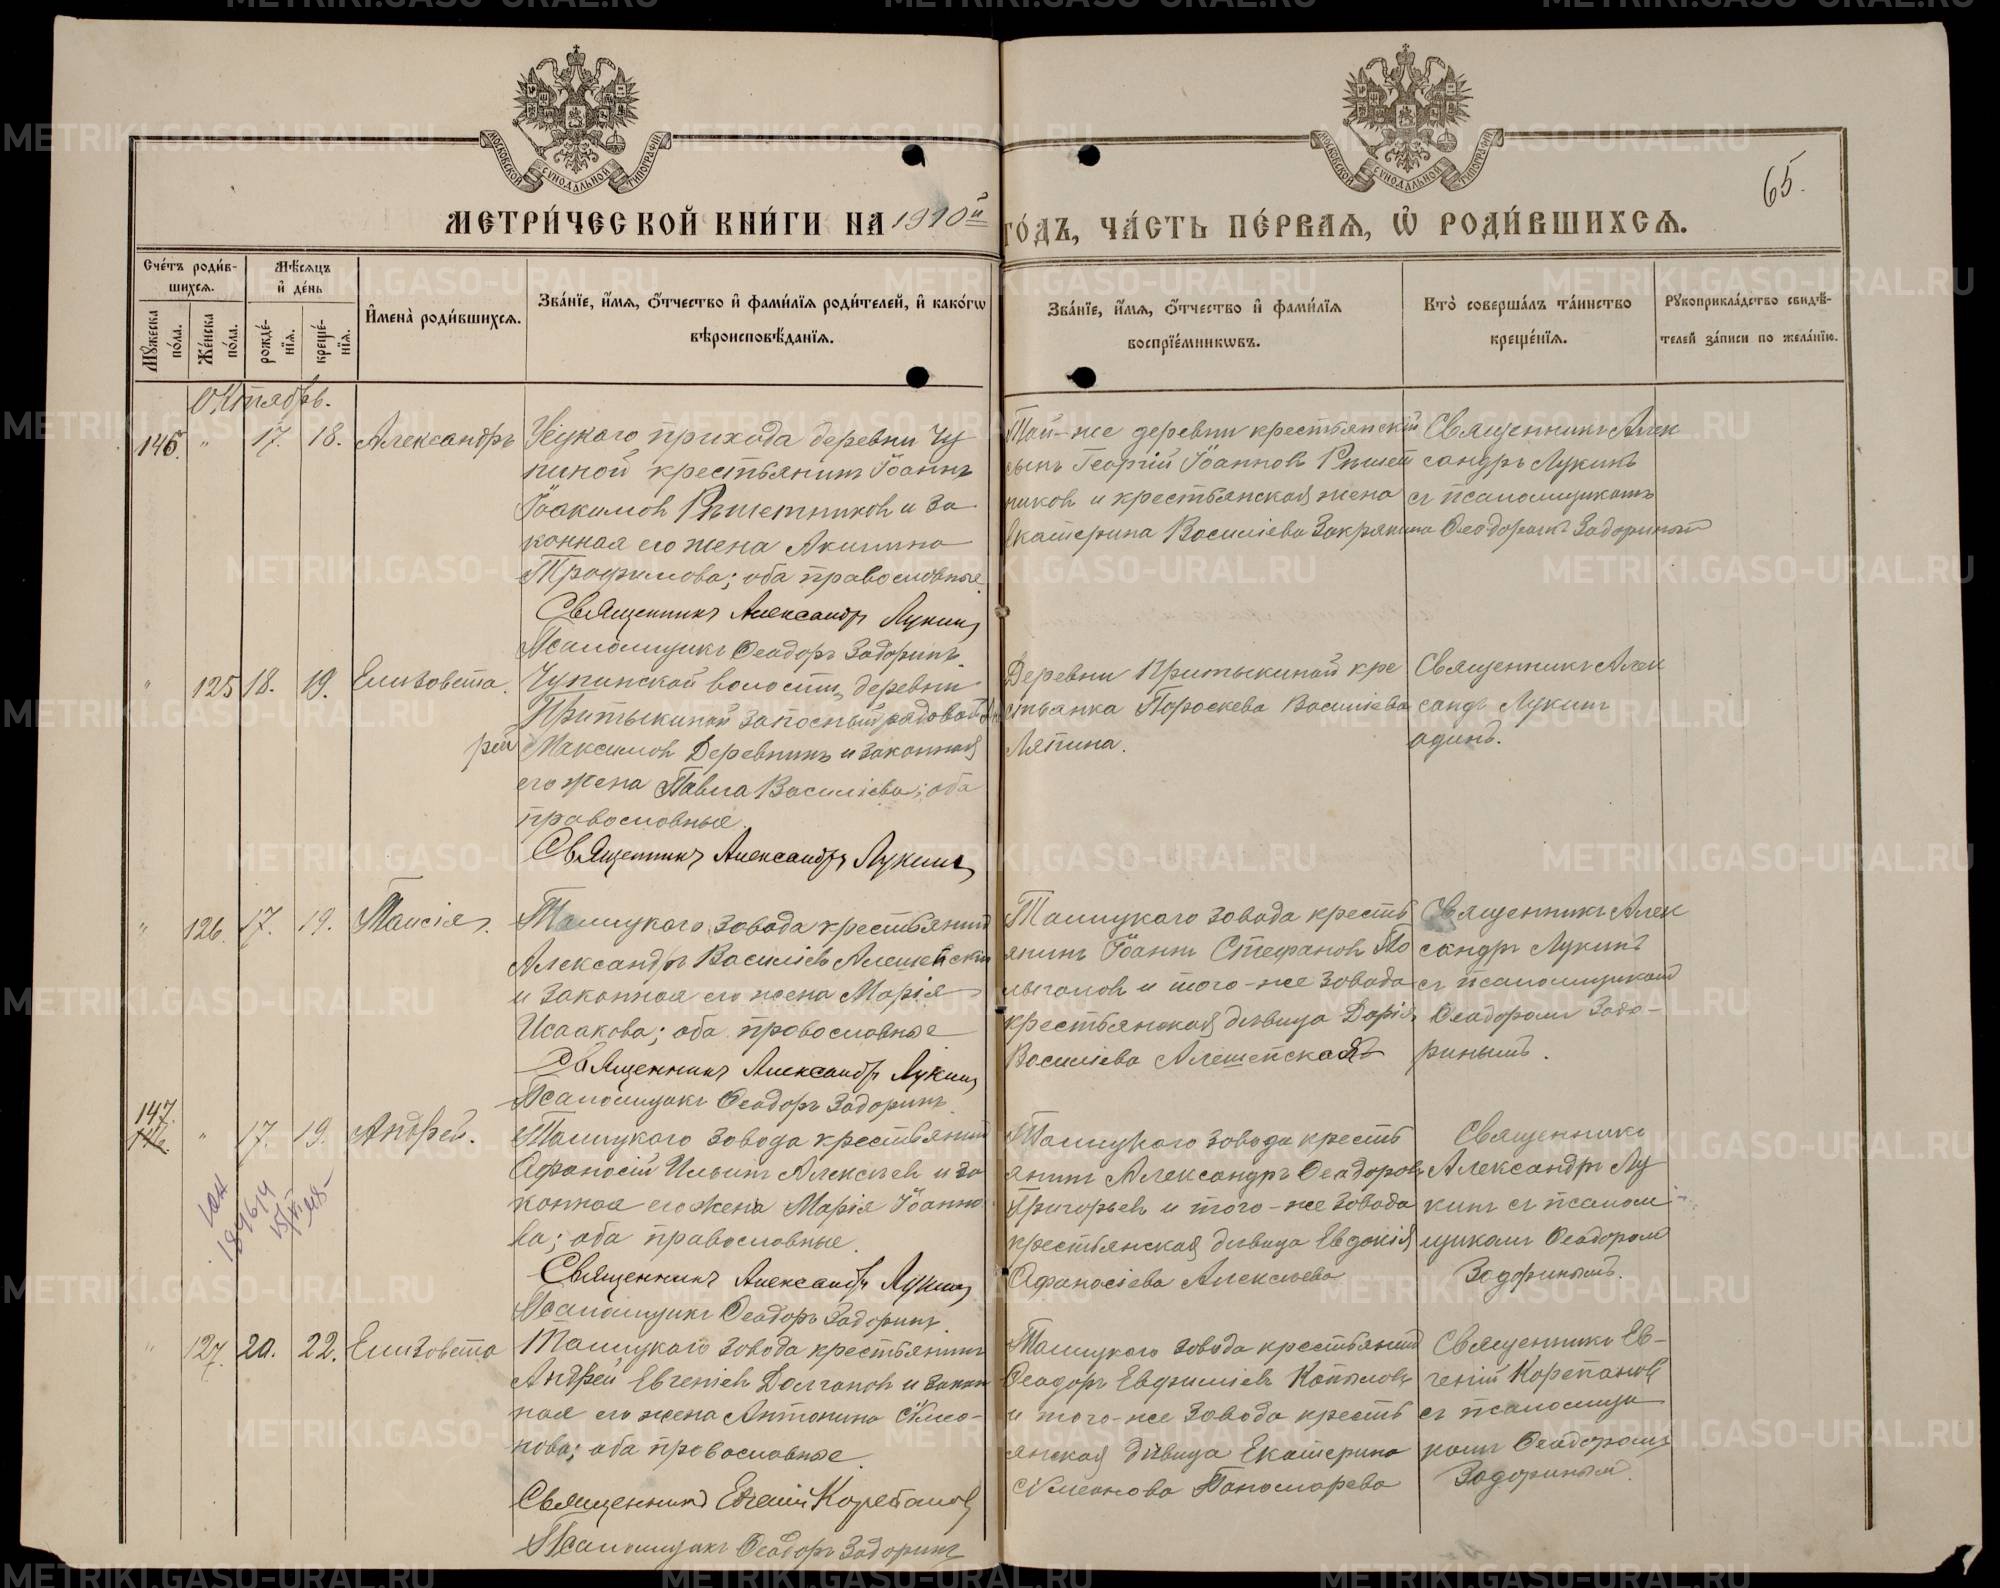 МОСКОВСКОЙ СУНОДАЛЬНОЙ ТИПОГРАФІИ
МОСКОВСКОЙ СУНОДАЛЬНОЙ ТИПОГРАФІИ
65.
МЕТРИ́ЧЕСКОЙ КНИ́ГИ НА 1910й ГО́ДЪ, ЧА́СТЬ ПЕ́РВАѦ, Ѡ҆ РОДИ́ВШИХСѦ.
Сче́тъ роди́в-
шихсѧ.
Мѣ́сѧцъ
и҆ де́нь
Мꙋ́жеска по́ла.
Же́нска по́ла.
рожде́-
нїѧ.
креще́-
нїѧ.
И҆мена̀ роди́вшихсѧ.
Зва́нїе, и҆́мѧ, ѻ҆́тчество и҆ фами́лїѧ роди́телей, и҆ како́гѡ
вѣроисповѣ́данїѧ.
Зва́нїе, и҆́мѧ, ѻ҆́тчество и҆ фами́лїѧ
воспрїе́мникѡвъ.
Кто̀ соверша́лъ та́инство
креще́нїѧ.
Рꙋкоприкла́дство свидѣ́-
телей за́писи по жела́нїю.
Октябрь.
145. " 17. 18. Александръ
прихода деревни Чу
пиной крестьянинъ Іоаннъ
Іоакимовъ Рѣшетниковъ и за
конная его жена Акилина
Трофимова; оба православные
Священникъ Александръ Лукинъ
Псаломщикъ Ѳеодоръ Задоринъ.
Той-же деревни крестьянскій
сынъ Георгій Іоанновъ Рѣшет
никовъ и крестьянская жена
Екатерина Василіева Закрякина
Священникъ Алек
сандръ Лукинъ
съ псаломщикомъ
Ѳеодоромъ Задоринымъ
" 125 18. 19. Елизавета.
Чупинской волости, деревни
Притыкиной запасный рядовой
рей Максимовъ Деревнинъ и законная
его жена Павла Василіева; оба
православные.
Священникъ Александръ Лукинъ
Деревни Притыкиной кре
стьянка Параскева Василіева
Ляпина.
Священникъ Алек
сандръ Лукинъ
одинъ.
" 126. 17. 19. Таисія.
Талицкаго завода крестьянинъ
Александръ Василіевъ Алешейскій
и законная его жена Марія
Исаакова; оба православные
Священникъ Александръ Лукинъ
Псаломщикъ Ѳеодоръ Задоринъ.
Талицкаго завода кресть
янинъ Іоаннъ Стефановъ По
лыгаловъ и того-же завода
крестьянская дѣвица Дарія
Василіева Алешейская
Священникъ Алек
сандръ Лукинъ
съ псаломщикомъ
Ѳеодоромъ Задо-
ринымъ.
147.
146. " 17. 19. Андрей.
Талицкаго завода крестьянинъ
Афанасій Ильинъ Алексѣевъ и за
конная его жена Марія Іоанно
ва; оба православные.
Священникъ Александръ Лукинъ
Псаломщикъ Ѳеодоръ Задоринъ.
Талицкаго завода кресть
янинъ Александръ Ѳеодоровъ
Григорьевъ и того-же завода
крестьянская дѣвица Евдокія
Афанасіева Алексѣева
Священникъ
Александръ Лу
кинъ съ псалом
щикомъ Ѳеодоромъ
Задоринымъ.
" 127. 20. 22. Елизавета
Талицкаго завода крестьянинъ
Андрей Евгеніевъ Долгановъ и закон
ная его жена Антонина Сѵмео-
нова; оба православные.
Священникъ Евгеній Корепановъ
Псаломщикъ Ѳеодоръ Задоринъ
Талицкаго завода крестьянинъ
Ѳеодоръ Евфиміевъ Копыловъ
и того-же завода кресть
янская дѣвица Екатерина
Сѵмеонова Пономарева
Священникъ Ев-
геній Корепановъ
съ псаломщи
комъ Ѳеодоромъ
Задоринымъ.
METRIKI.GASO-URAL.RU